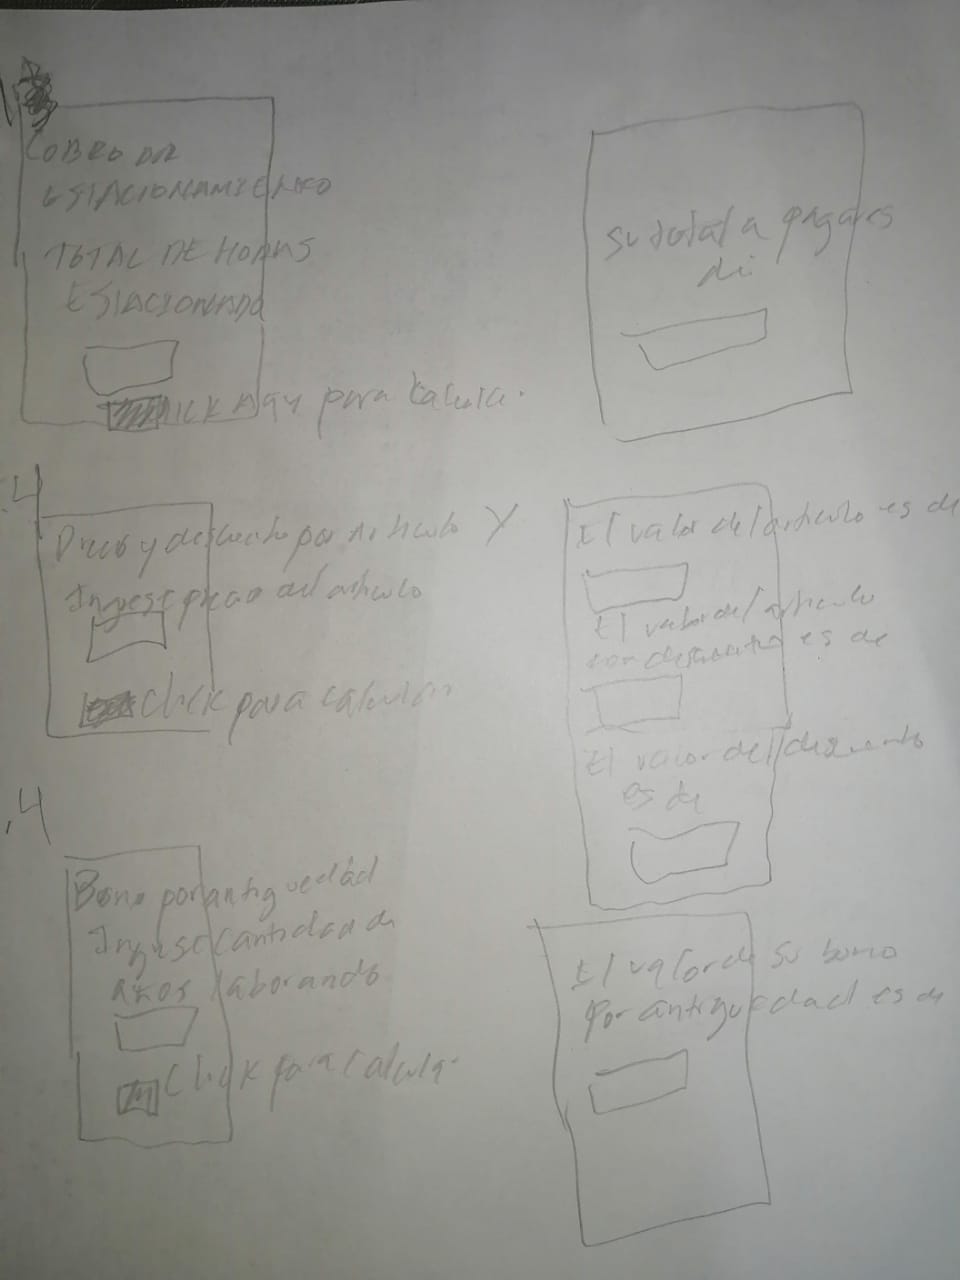 COBRO DE
ESTACIONAMIENTO
TOTAL DE HORAS
ESTACIONADO
CLICK AQY para Calcula.
Su total a pagar es
de
.4
y descuento por Articulo Y
Ingese precio del articulo
Click para calcular
El valor del articulo es de
El valor del articulo
con descuento es de
El valor del descuento
es de
.4
Bono por antiguedad
Ingese Cantidad de
años laborando
Click para calcula.
El valor de su bono
Por antiguedad es de